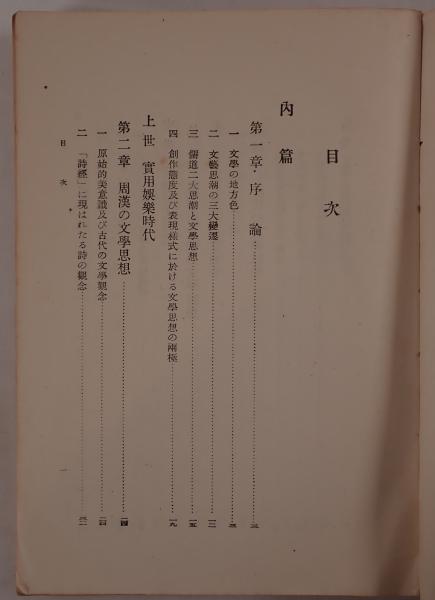 目次
內篇
第一章 序論 三
一 文學の地方色 三
二 文藝思潮の三大變遷 一三
三 儒道二大思潮と文學思想 一五
四 創作態度及び表現樣式に於ける文學思想の兩極 一九
上世 實用娛樂時代
第二章 周漢の文學思想 二四
一 原始的美意識及び古代の文學觀念 二四
二 「詩經」に現はれたる詩の觀念 三一
目次 一